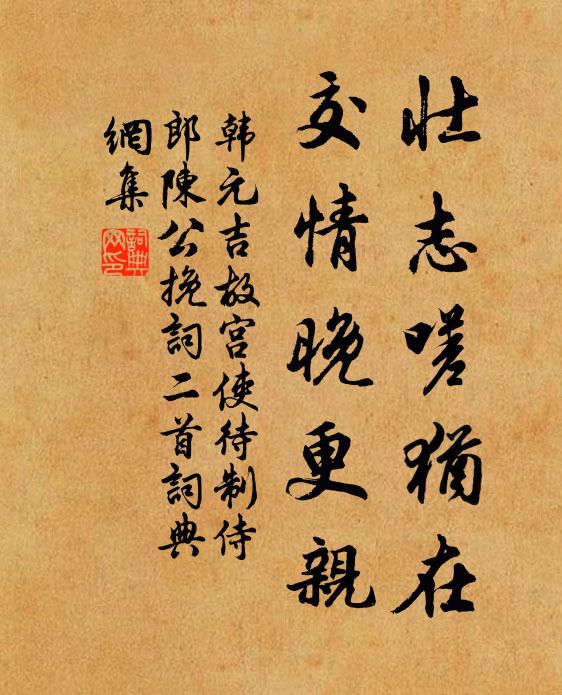 壯志嗟猶在
交情晚更親
韩元吉故宫使待制侍
郎陳公挽詞二首詞典
網集
詞典
网印